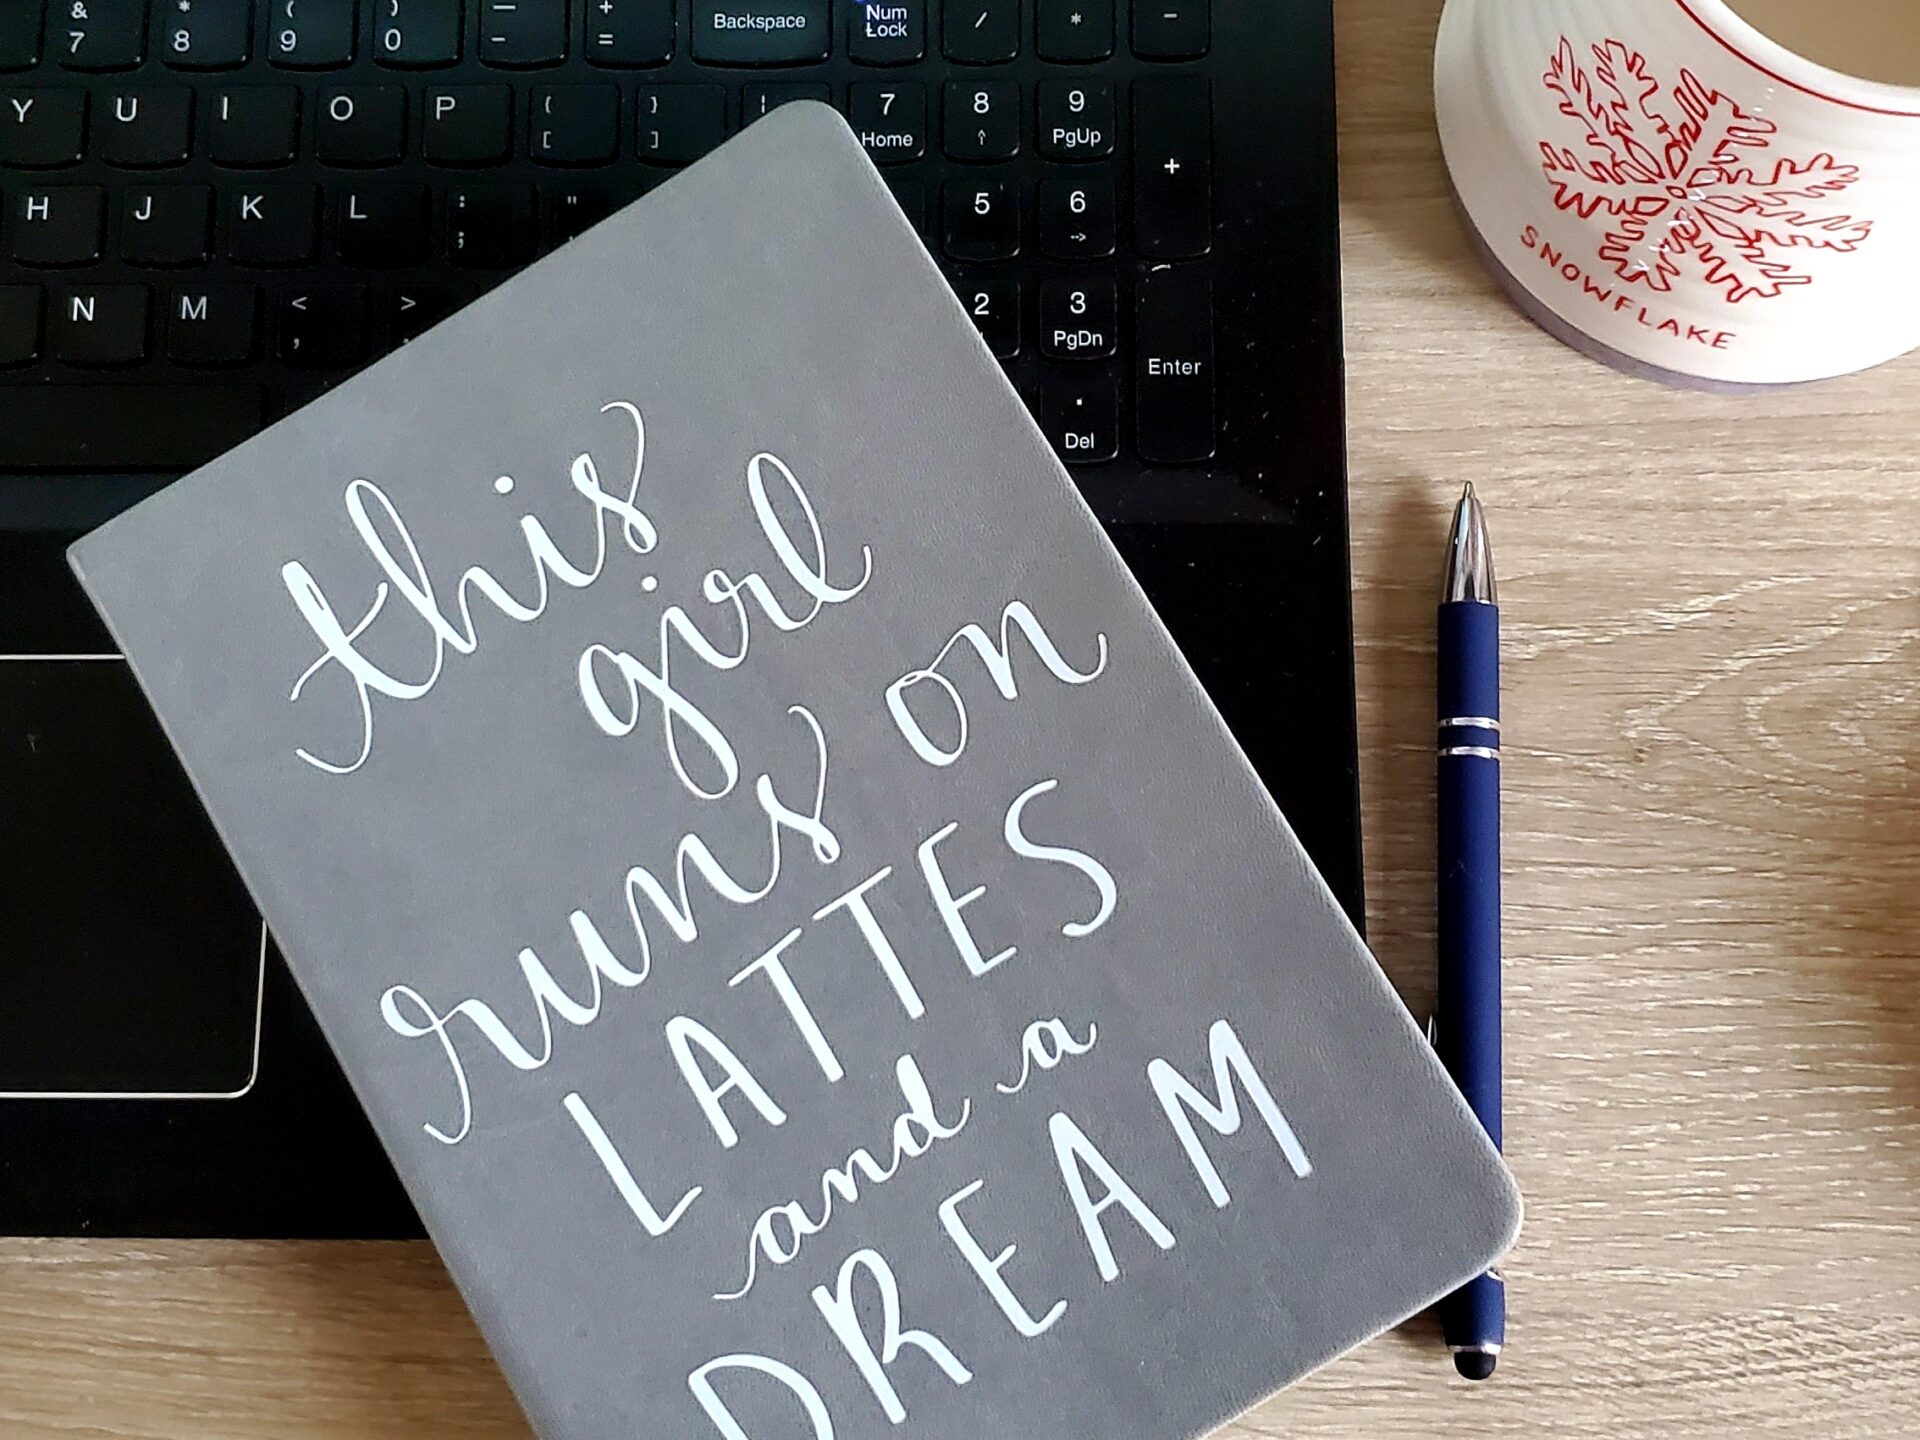 & * ( ) — + Backspace Num Lock / * -
7 8 9 0 - =
Y U I O P { } | 7 8 9
[ ] Home ↑ PgUp +
H J K L : " 5 6
; --> 
N M < > 2 3
, PgDn Enter
. Del
this
girl
runs on
LATTES
and a
DREAM
SNOWFLAKE